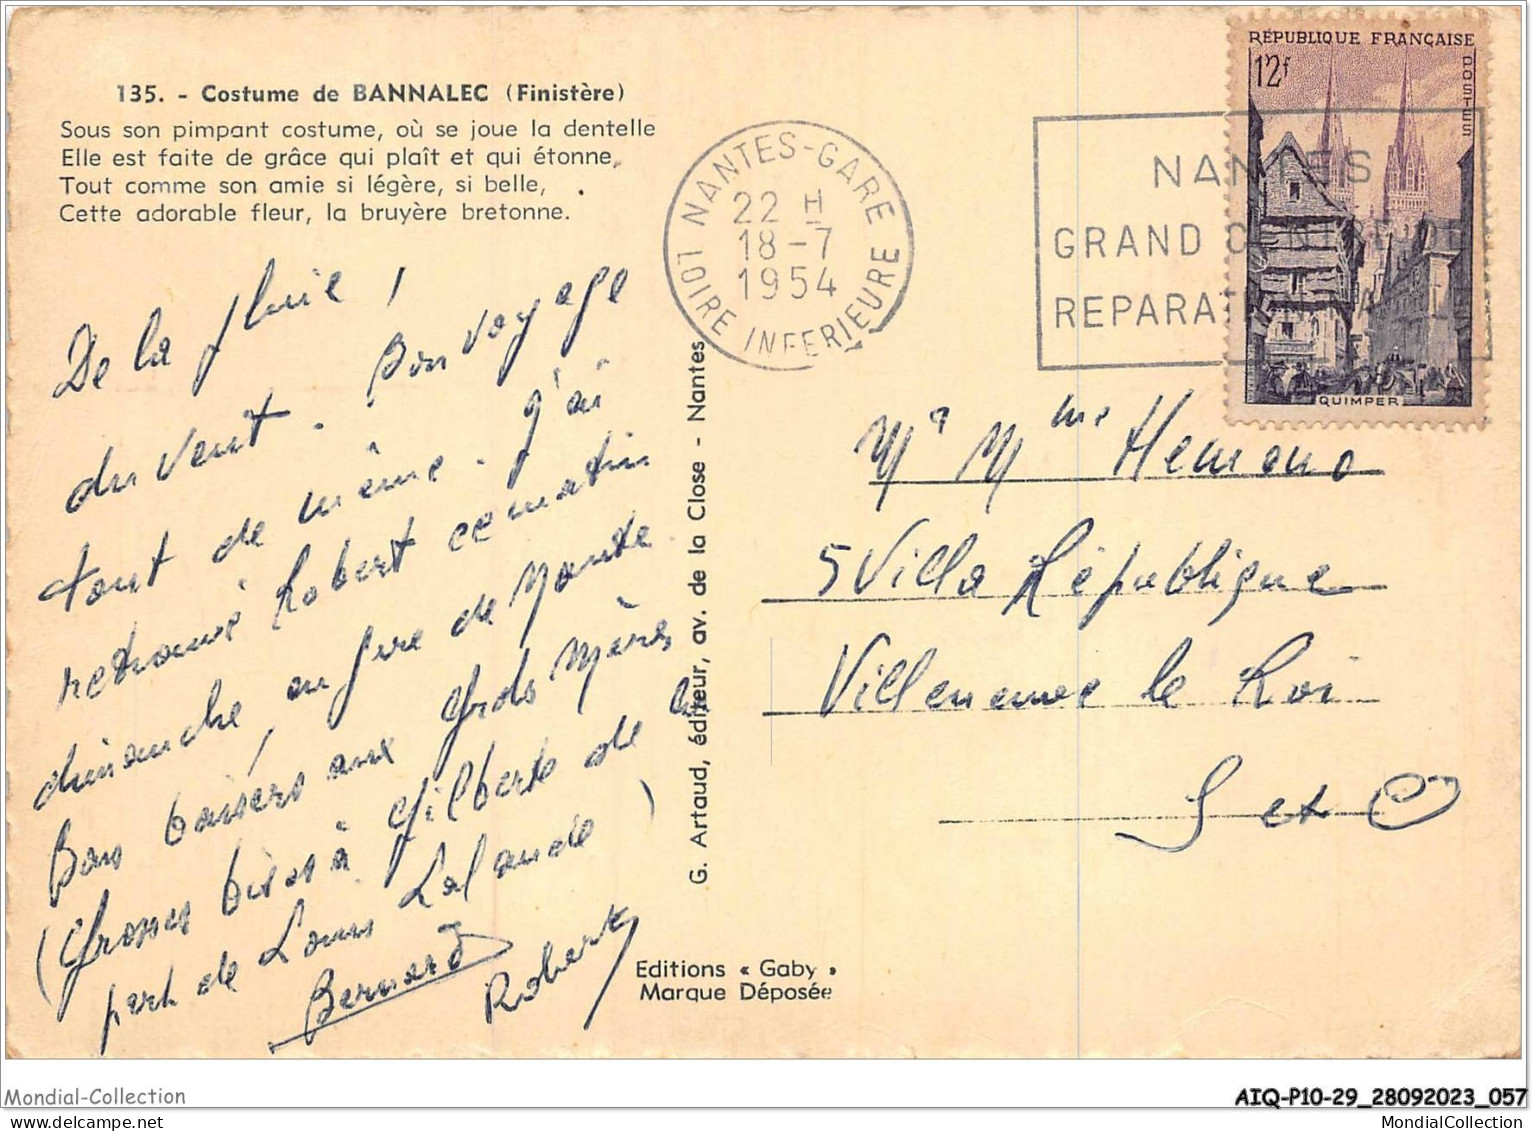 135. - Costume de BANNALEC (Finistère)
Sous son pimpant costume, où se joue la dentelle
Elle est faite de grâce qui plaît et qui étonne,
Tout comme son amie si légère, si belle,
Cette adorable fleur, la bruyère bretonne.
De la pluie !
du vent. Bon voyage
tout de même. J'ai
retrouvé Robert ce matin
dimanche, en gare de Nantes
Bons baisers aux Grds Mères
(Grosses bises à Gilberte de la
part de Louis Lalande)
Bernard
Robert
G. Artaud, éditeur, av. de la Close - Nantes
Editions « Gaby »
Marque Déposée
NANTES-GARE
22 H
18-7
1954
LOIRE INFERIEURE
NANTES
GRAND CENTRE DE
REPARATION NAVALE
RÉPUBLIQUE FRANÇAISE
12f
POSTES
QUIMPER
Mr Mme Hemono
5 Villa République
Villeneuve le Roi
S et O
Mondial-Collection
AIQ-P10-29_28092023_057
MondialCollection